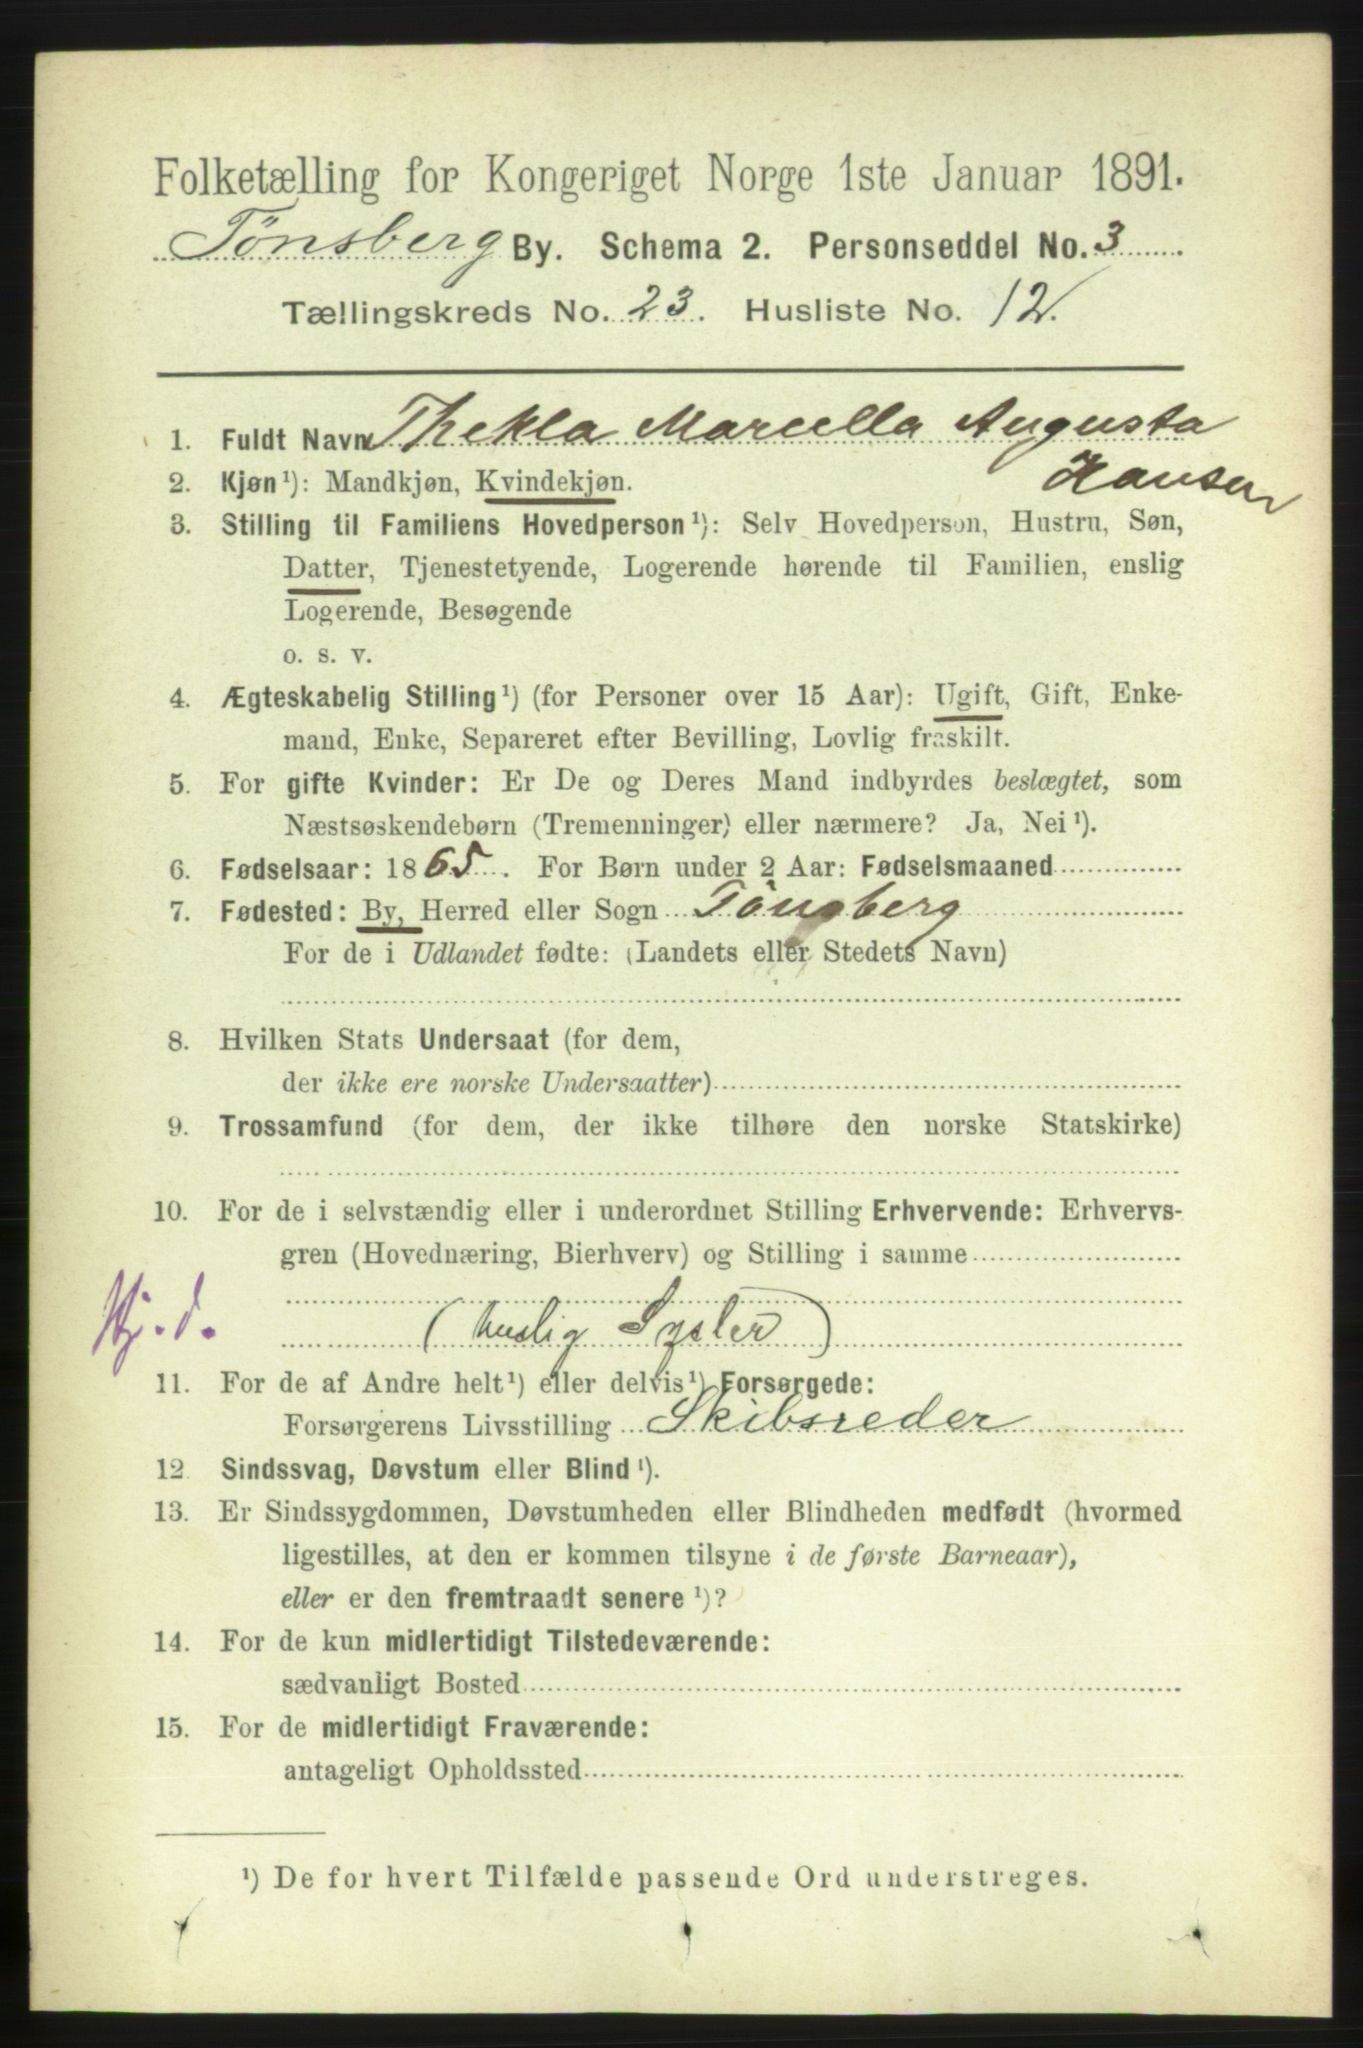 Folketælling for Kongeriget Norge 1ste Januar 1891.
Tønsberg By. Schema 2. Personseddel No. 3
Tællingskreds No. 23. Husliste No. 12.
1. Fuldt Navn Thekla Marcella Augusta
Hansen
2. Kjøn¹): Mandkjøn, Kvindekjøn.
3. Stilling til Familiens Hovedperson¹): Selv Hovedperson, Hustru, Søn,
Datter, Tjenestetyende, Logerende hørende til Familien, enslig
Logerende, Besøgende
o. s. v.
4. Ægteskabelig Stilling¹) (for Personer over 15 Aar): Ugift, Gift, Enke-
mand, Enke, Separeret efter Bevilling, Lovlig fraskilt.
5. For gifte Kvinder: Er De og Deres Mand indbyrdes beslægtet, som
Næstsøskendebørn (Tremenninger) eller nærmere? Ja, Nei¹).
6. Fødselsaar: 1865. For Børn under 2 Aar: Fødselsmaaned
7. Fødested: By, Herred eller Sogn Tönsberg
For de i Udlandet fødte: (Landets eller Stedets Navn)
8. Hvilken Stats Undersaat (for dem,
der ikke ere norske Undersaatter)
9. Trossamfund (for dem, der ikke tilhøre den norske Statskirke)
10. For de i selvstændig eller i underordnet Stilling Erhvervende: Erhvervs-
gren (Hovednæring, Bierhverv) og Stilling i samme
Hj. d. (huslig Sysler)
11. For de af Andre helt¹) eller delvis¹) Forsørgede:
Forsørgerens Livsstilling Skibsreder
12 Sindssvag, Døvstum eller Blind¹).
13. Er Sindssygdommen, Døvstumheden eller Blindheden medfødt (hvormed
ligestilles, at den er kommen tilsyne i de første Barneaar),
eller er den fremtraadt senere¹)?
14. For de kun midlertidigt Tilstedeværende:
sædvanligt Bosted
15. For de midlertidigt Fraværende:
antageligt Opholdssted
¹) De for hvert Tilfælde passende Ord understreges.